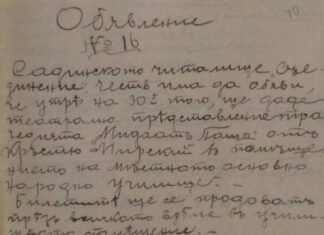 40
Обявление
№ 16
Садинското читалище „Съе
динение" честь има да обяви,
че утрѣ на 30й того, ще даде
театрално прѣдставление тра
гедията „Мидаатъ Паша" отъ
Кръстю Мирский въ помѣще
нието на мѣстното основно
народно училище. –
Билетитѣ ще се продоватъ
прѣзъ всѣкото врѣме въ учили